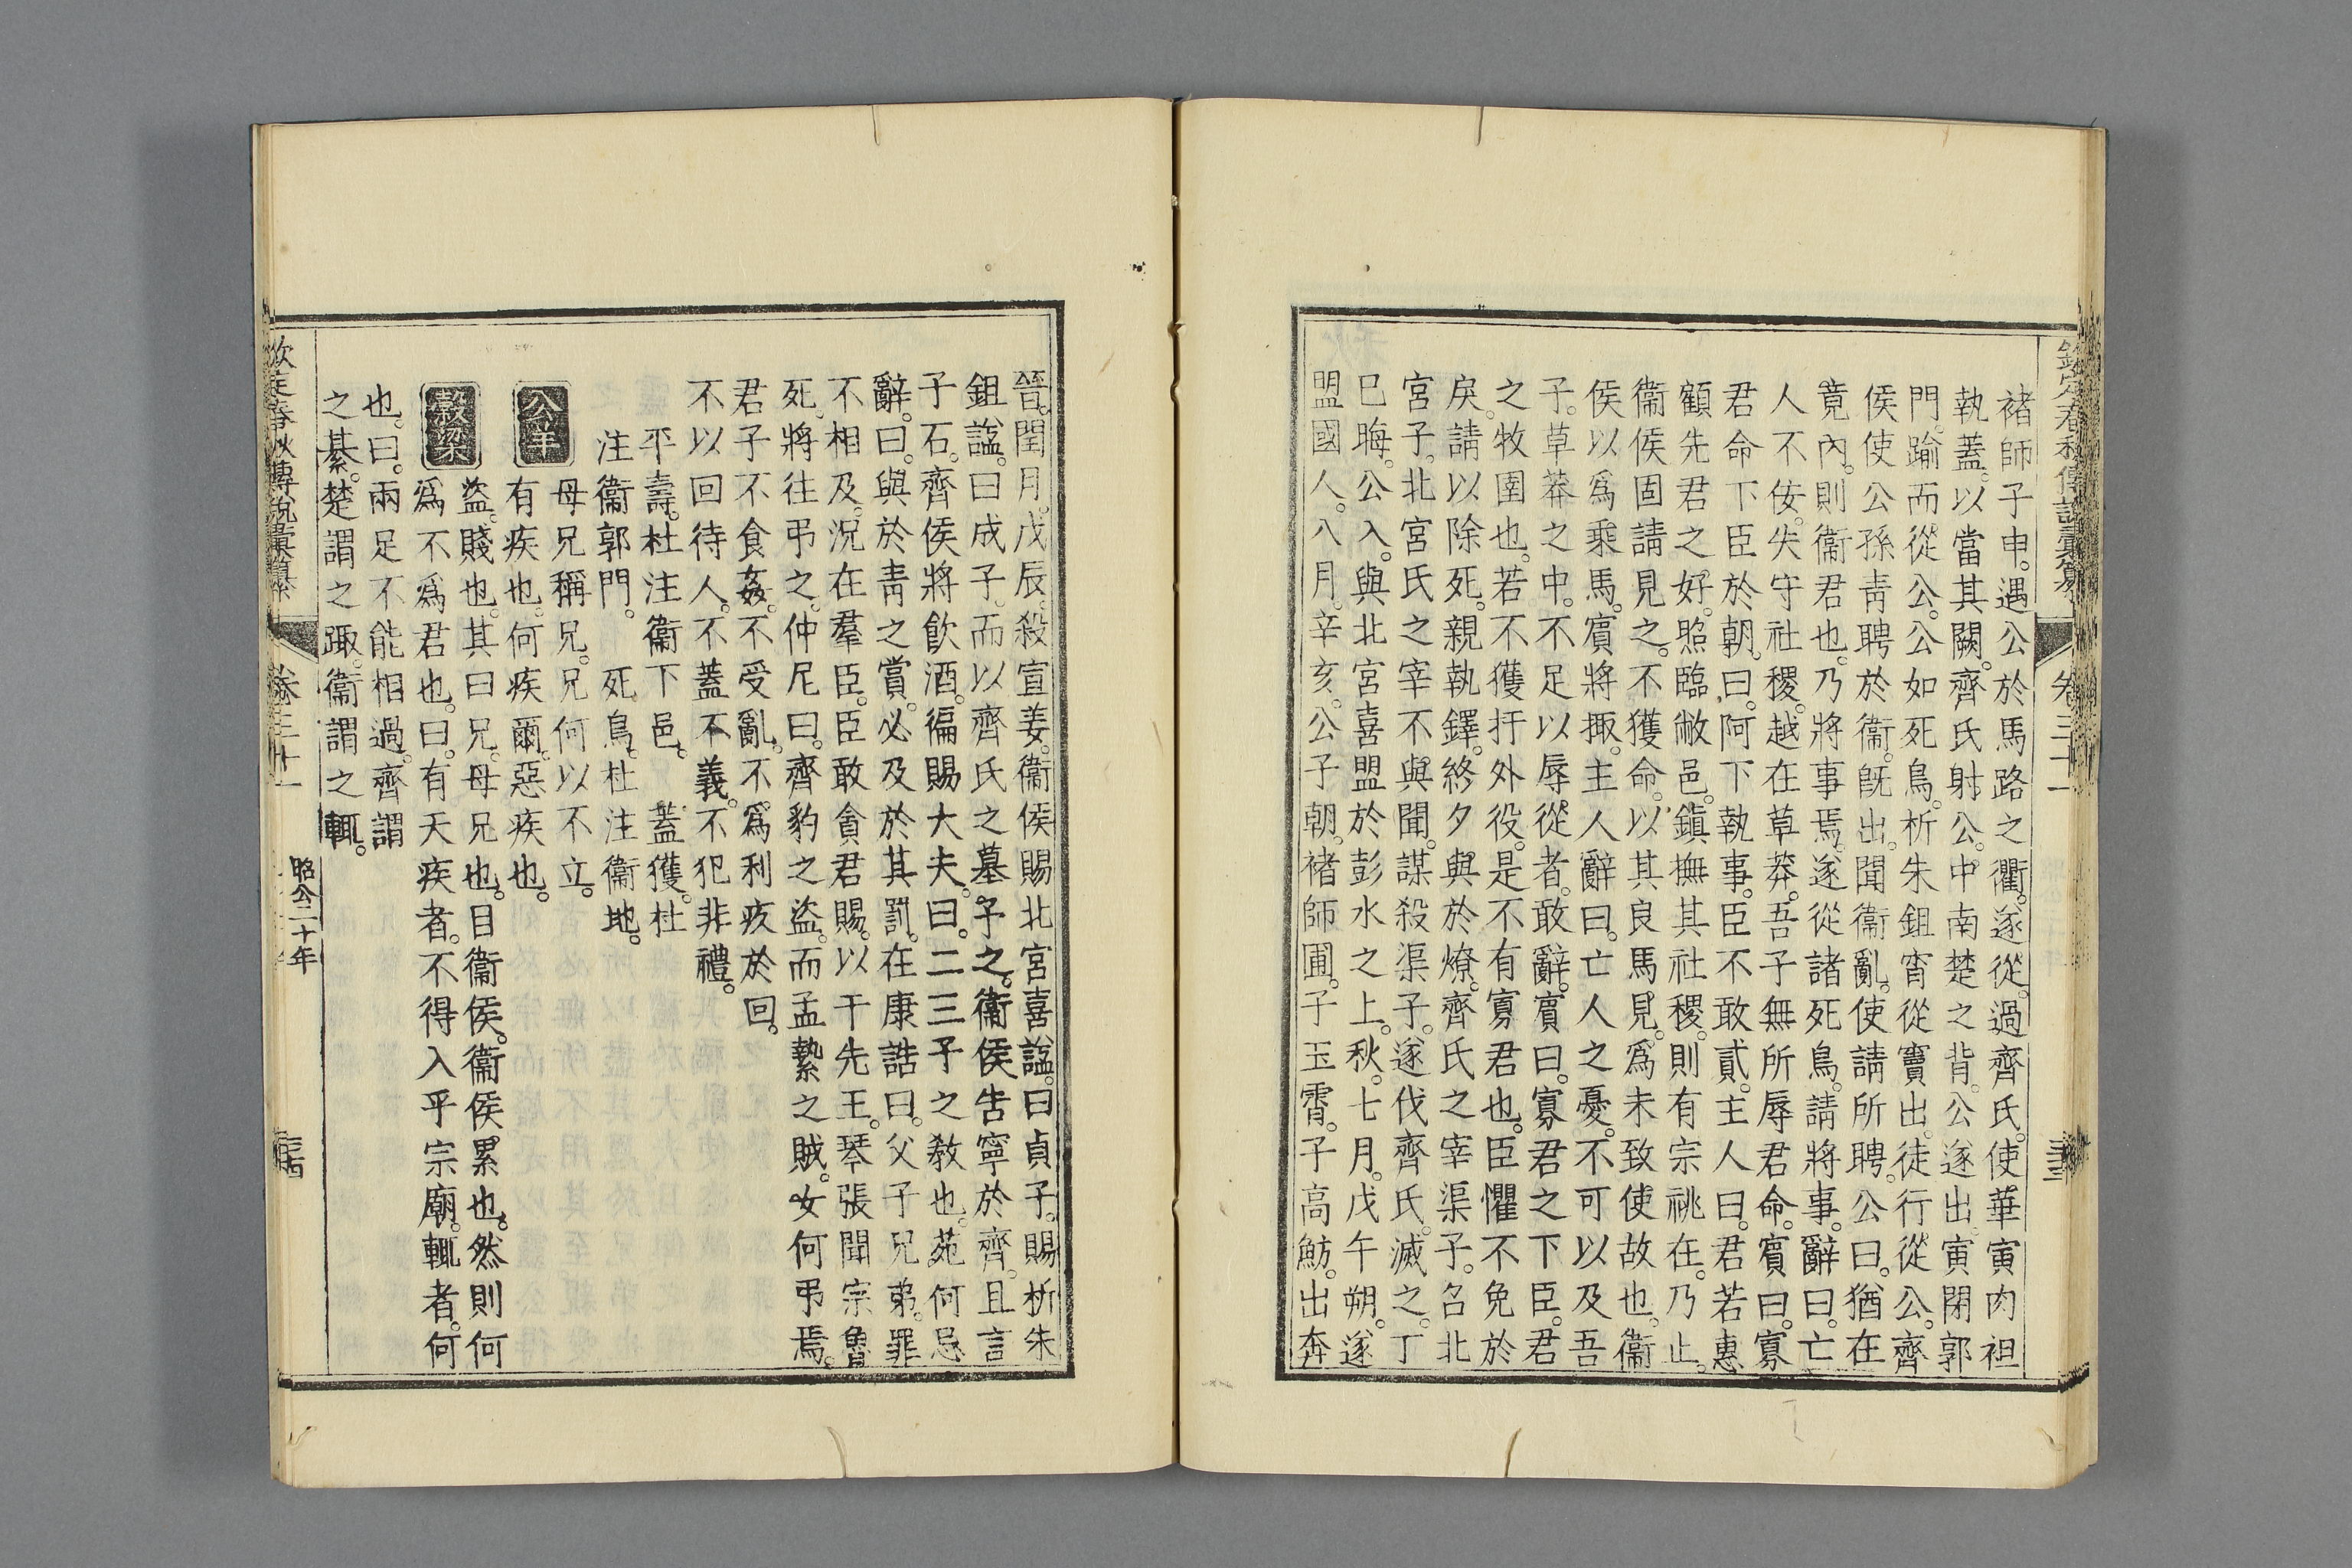 欽定春秋傳說彙纂 卷三十一 三三
褚師子申。遇公於馬路之衢。遂從。過齊氏。使華寅肉袒
執蓋。以當其闕。齊氏射公。中南楚之背。公遂出。寅閉郭
門。踰而從公。公如死鳥。析朱鉏宵從竇出。徒行從公。齊
侯使公孫青聘於衞。旣出。聞衞亂。使請所聘。公曰。猶在
竟內。則衞君也。乃將事焉。遂從諸死鳥。請將事。辭曰。亡
人不佞。失守社稷。越在草莽。吾子無所辱君命。賓曰。寡
君命下臣於朝。曰。阿下執事。臣不敢貳。主人曰。君若惠
顧先君之好。照臨敝邑。鎭撫其社稷。則有宗祧在。乃止。
衞侯固請見之。不獲命。以其良馬見。爲未致使故也。衞
侯以爲乘馬。賓將掫。主人辭曰。亡人之憂。不可以及吾
子。草莽之中。不足以辱從者。敢辭。賓曰。寡君之下臣。君
之牧圉也。若不獲扞外役。是不有寡君也。臣懼不免於
戾。請以除死。親執鐸。終夕與於燎。齊氏之宰渠子。召北
宮子。北宮氏之宰不與聞。謀殺渠子。遂伐齊氏。滅之。丁
巳晦。公入。與北宮喜盟於彭水之上。秋。七月。戊午朔。遂
盟國人。八月。辛亥。公子朝。褚師圃。子玉霄。子高魴。出奔
晉。閏月。戊辰。殺宣姜。衞侯賜北宮喜諡。曰貞子。賜析朱
鉏諡。曰成子。而以齊氏之墓予之。衞侯告寧於齊。且言
子石。齊侯將飮酒。徧賜大夫。曰。二三子之敎也。苑何忌
辭。曰。與於靑之賞。必及於其罰。在康誥曰。父子兄弟。罪
不相及。況在羣臣。臣敢貪君賜。以干先王。琴張聞宗魯
死。將往弔之。仲尼曰。齊豹之盜。而孟縶之賊。女何弔焉。
君子不食姦。不受亂。不爲利疚於回。
不以回待人。不蓋不義。不犯非禮。
平壽。杜注衞下邑。 蓋獲。杜
注衞郭門。 死鳥。杜注衞地。
母兄稱兄。兄何以不立。
公羊 有疾也。何疾爾。惡疾也。
盜。賤也。其曰兄。母兄也。目衞侯。衞侯累也。然則何
穀梁 爲不爲君也。曰。有天疾者。不得入乎宗廟。輒者。何
也。曰。兩足不能相過。齊謂
之綦。楚謂之踙。衞謂之輒。
欽定春秋傳說彙纂 卷三十一 昭公二十年 三四